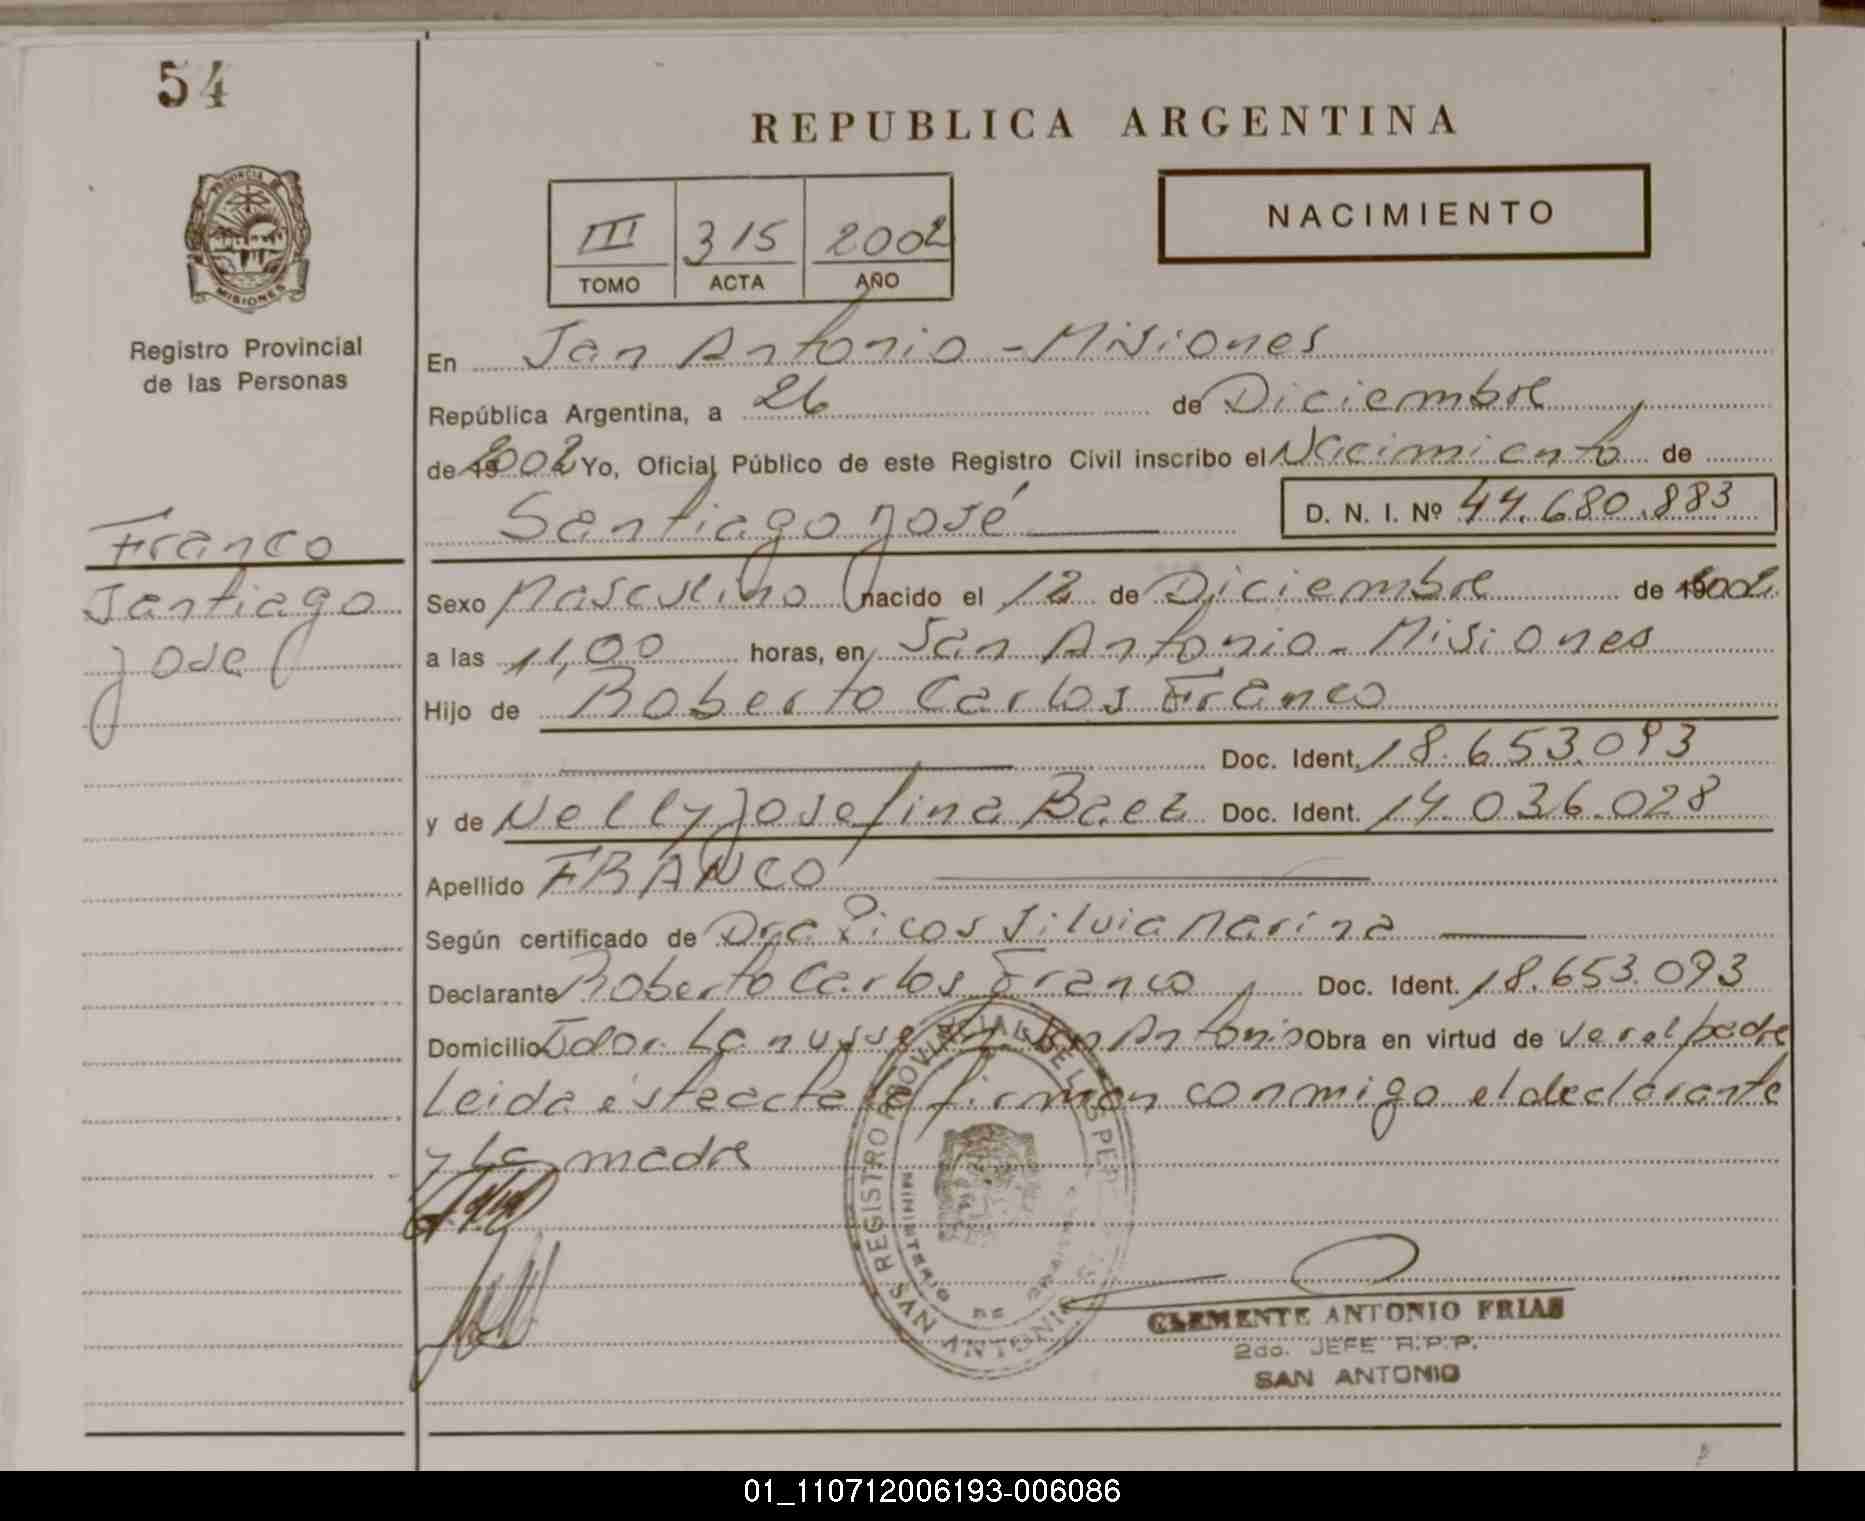 54
REPUBLICA ARGENTINA
NACIMIENTO
III 315 2002
TOMO ACTA AÑO
PROVINCIA DE
MISIONES
Registro Provincial
de las Personas
En San Antonio - Misiones
República Argentina, a 26 de Diciembre
de 2002 Yo, Oficial Público de este Registro Civil inscribo el Nacimiento de
Santiago José D. N. I. Nº 44.680.883
Franco
Santiago
José
Sexo Masculino nacido el 12 de Diciembre de 2002
a las 11,00 horas, en San Antonio - Misiones
Hijo de Roberto Carlos Franco
Doc. Ident. 18.653.093
y de Nelly Josefina Baez Doc. Ident. 14.036.028
Apellido FRANCO
Según certificado de Dra Picos Silvia Marina
Declarante Roberto Carlos Franco Doc. Ident. 18.653.093
Domicilio Tdor. Lanusse San Antonio Obra en virtud de ser el padre
Leida ésta acta la firman conmigo el declarante
y la madre
REGISTRO PROVINCIAL DE LAS PER
MINISTERIO DE
SAN ANTONIO
CLEMENTE ANTONIO FRIAS
2do. JEFE R.P.P.
SAN ANTONIO
01_110712006193-006086